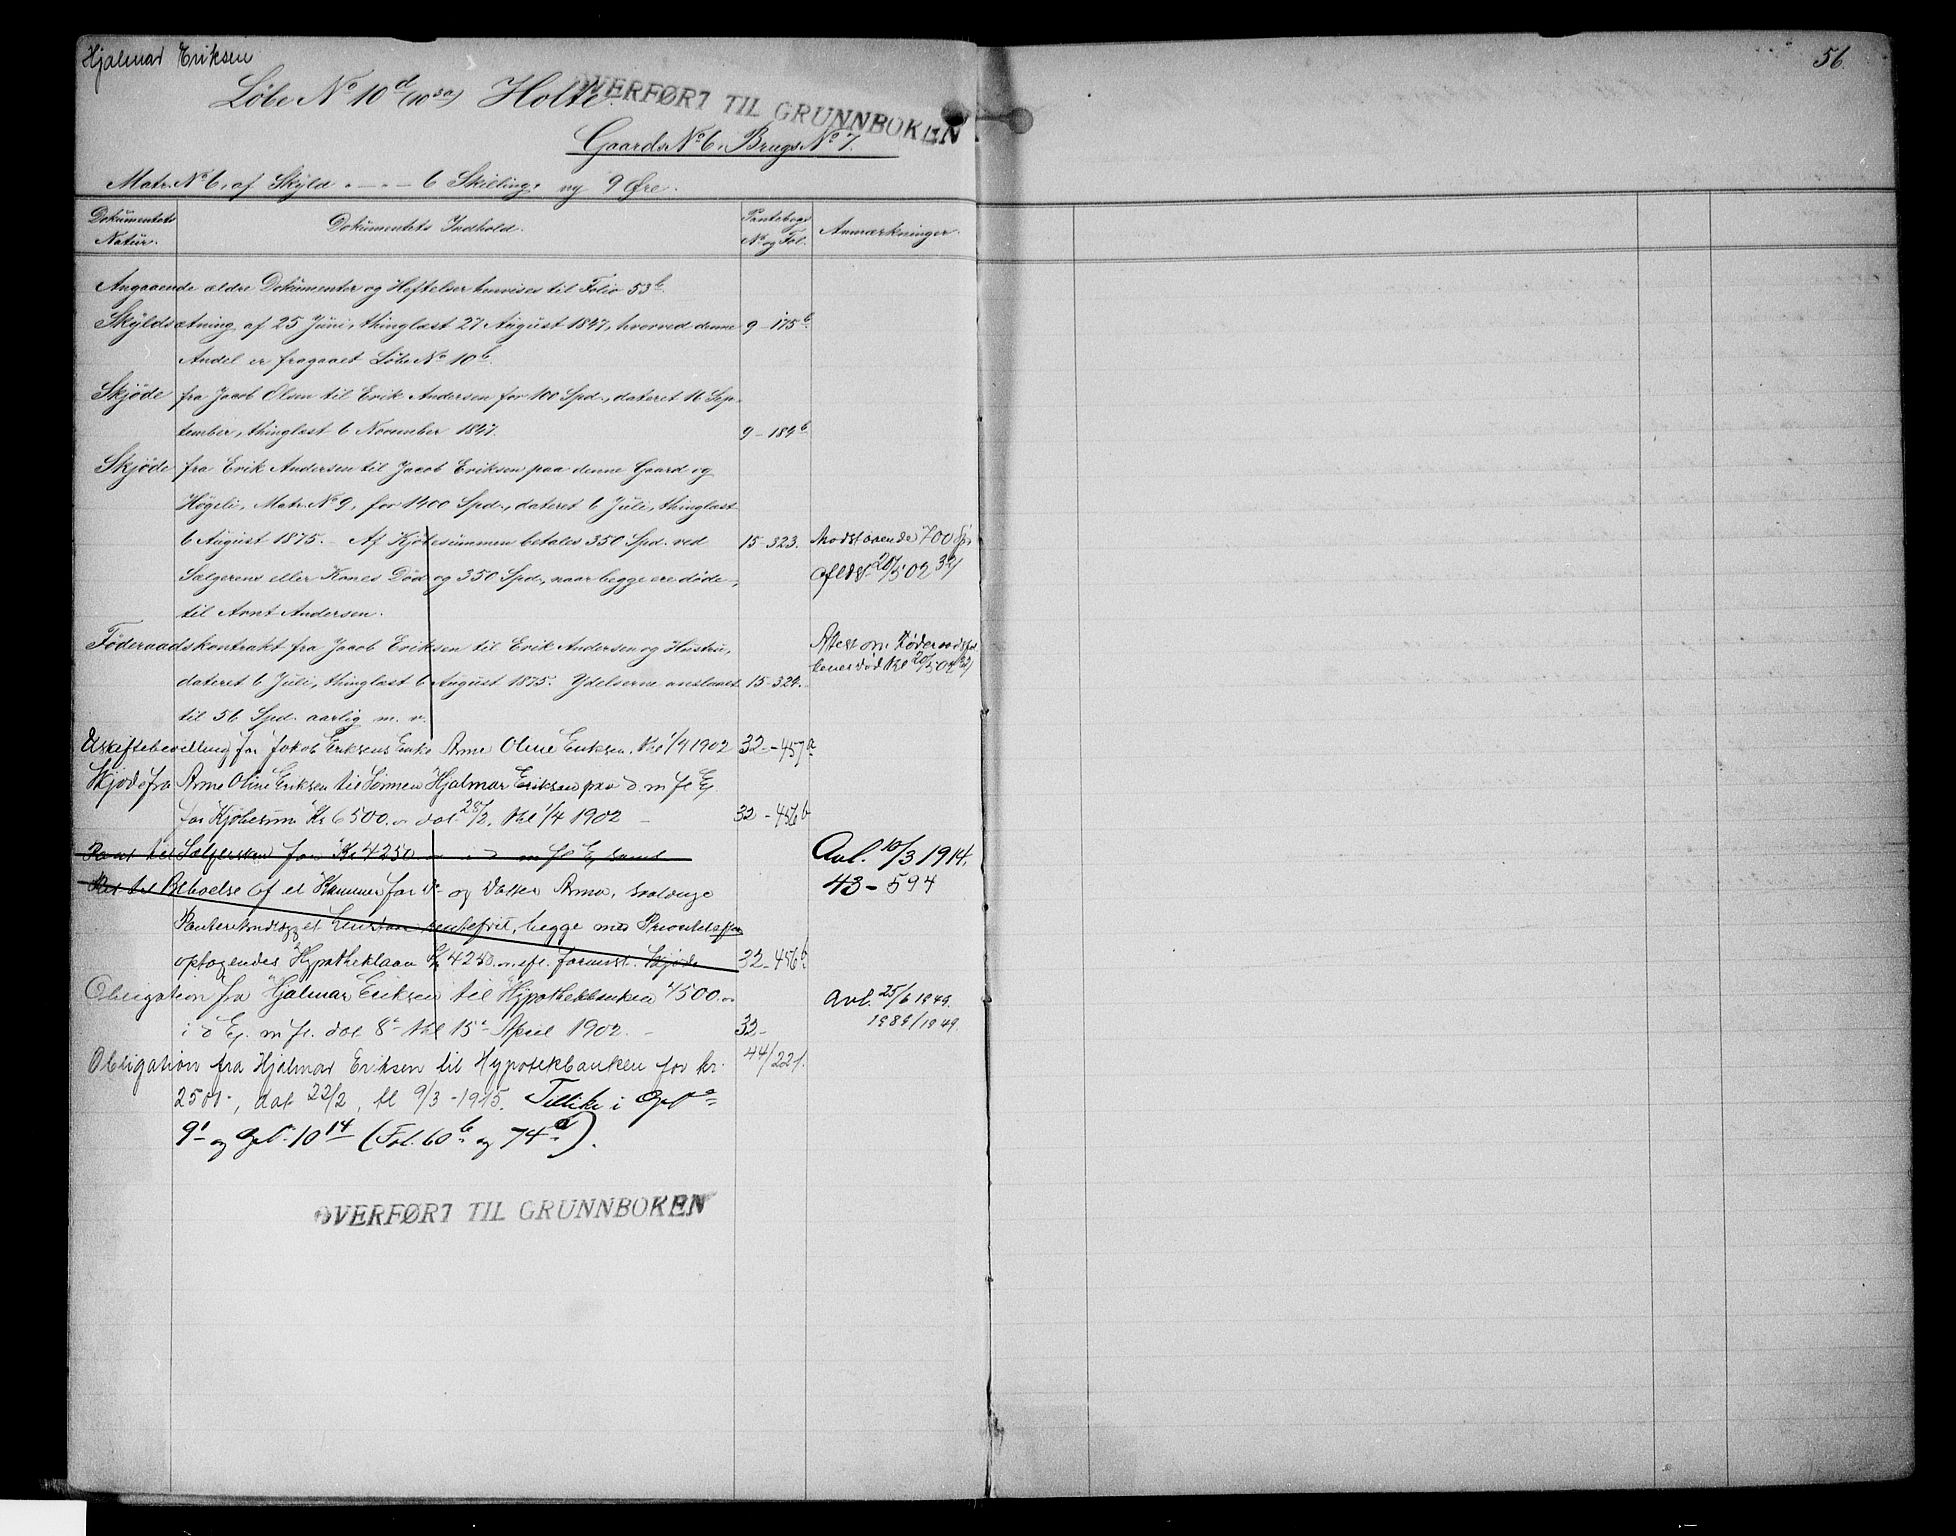 Hjalmar Eriksen
56.
Löbe No 10d (10 3a) Holte.
OVERFØRT TIL GRUNNBOKEN
Gaards No 6, Brugs No 7.
Matr. No 6, af Skyld 6 Skilling, ny 9 Øre.
Dokumentets Natur. Dokumentets Indhold. Pantebogs No og Fol. Anmærkninger.
Angaaende ældre Dokumenter og Heftelser henvises til Folio 53b.
Skyldsætning af 25 Juni, thinglæst 27 August 1847, hvorved denne 9-175b
Andel er fragaaet Löbe No 10b.
Skjøde fra Jacob Olsen til Erik Andersen for 100 Spd., dateret 16 Sep-
tember, thinglæst 6 November 1847. 9-184b
Skjøde fra Erik Andersen til Jacob Eriksen paa denne Gaard og
Högeli, Matr. No 9, for 1400 Spd., dateret 6 Juli, thinglæst
6 August 1875. Af Kjöbesummen betales 350 Spd. ved 15-323. Modstaaende 700 Spd
Sælgerens eller Kones Död og 350 Spd., naar begge ere döde, aflyst 20/5 02
til Arnt Andersen.
Föderaadskontrakt fra Jacob Eriksen til Erik Andersen og Hustru, Attest om Föderaadsfol-
dateret 6 Juli, thinglæst 6 August 1875. Ydelserne anslaaet 15-324. kenes död thl 20/5 02
til 56 Spd. aarlig m. v.
Uskiftebevilling for Jakob Eriksens Enke Anne Oline Eriksen, thl 1/4 1902 32-457a
Skjøde fra Anne Oline Eriksen til Sönnen Hjalmar Eriksen paa d. m fl Ej
for Kjöbesum Kr 6500.- dat. 28/2, thl 1/4 1902 32-456b
Pant til Sælgersken for Kr 4250 i d m fl Ej samt Avl. 10/3 1914.
Ret til Beboelse af et Kammer for do og Datter Anna, saalænge 43-594
rentefrit, begge med Prioritet efter
optagendes Hypotheklaan Kr 4250.- efl. fornævnt. Skjöde 32-456b
Obligation fra Hjalmar Eriksen til Hypothekbanken 4500.- Avl. 25/6 1949.
i d Ej. m fl. dat 8de thl 15de April 1902. 32- 1989/1949.
Obligation fra Hjalmar Eriksen til Hypotekbanken for kr. 44/221.
2500-, dat 22/2, tl 9/3-1915. Tillike i Gno
9,1 og Gno. 10,14 (Fol. 60b og 74a).
OVERFØRT TIL GRUNNBOKEN